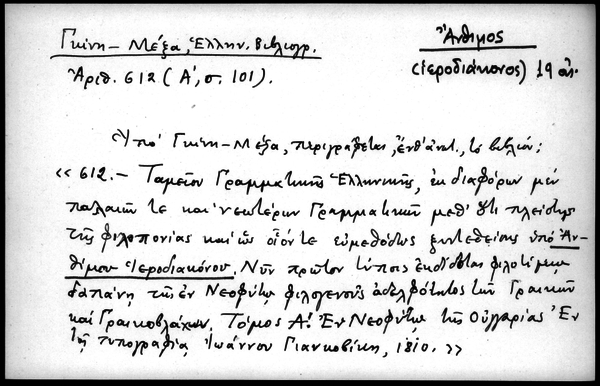 Γκίνη – Μέξα, Ἑλλην. Βιβλιογρ.
Ἀριθ. 612 (Α', σ. 101).
Ἄνθιμος
(ἱεροδιάκονος) 19 αἰ.
Ὑπὸ Γκίνη – Μέξα, περιγράφεται, ἔνθ' ἀνωτ., τὸ βιβλίον:
« 612. – Ταμεῖον Γραμματικῆς Ἑλληνικῆς, ἐκ διαφόρων μὲν
παλαιῶν τε καὶ νεωτέρων Γραμματικῶν μεθ' ὅτι πλείστης
τῆς φιλοπονίας καὶ ὡς οἷόν τε εὐμεθόδως ξυντεθεῖσης ὑπὸ Ἀν-
θίμου Ἱεροδιακόνου. Νῦν πρῶτον τύποις ἐκδίδοται φιλοτίμῳ
δαπάνῃ τῆς ἐν Νεοφύτῳ φιλογενοῦς ἀδελφότητος τῶν Γραικῶν
καὶ Γραικοβλάχων. Τόμος Α! Ἐν Νεοφύτῳ τῆς Οὑγγαρίας Ἐν
τῇ τυπογραφίᾳ Ἰωάννου Γιανκοβίκη, 1810. »